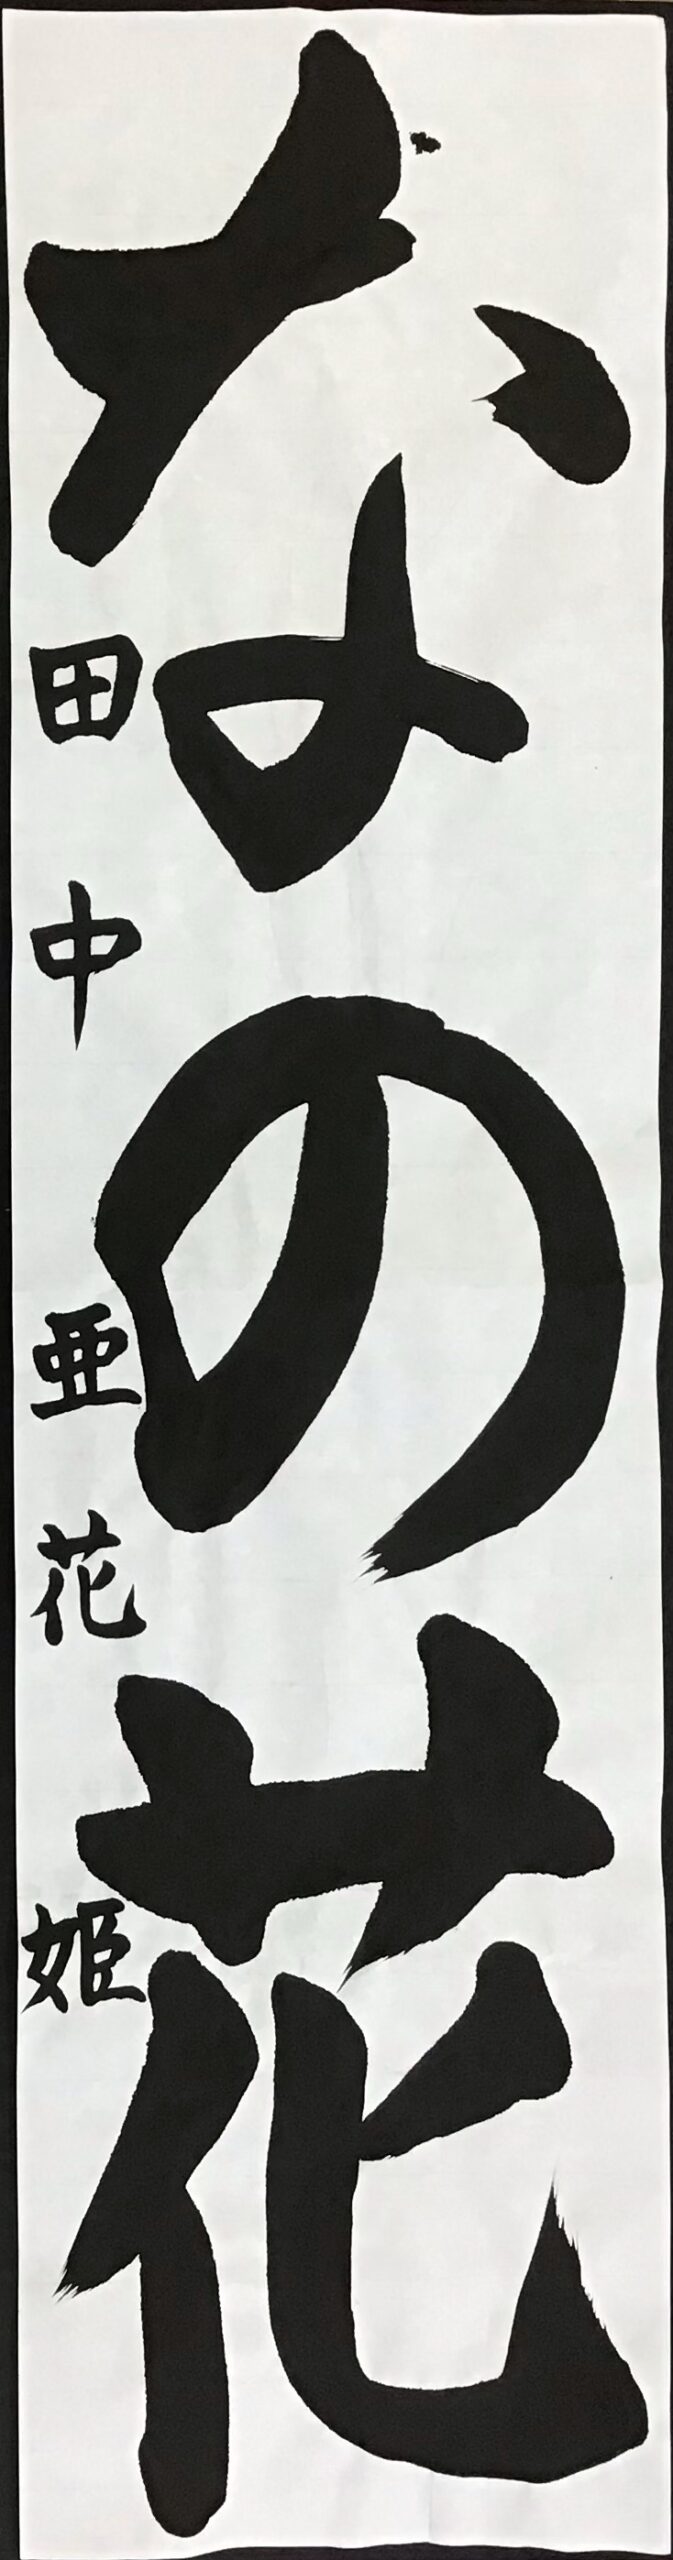 なの花
田中亜花姫